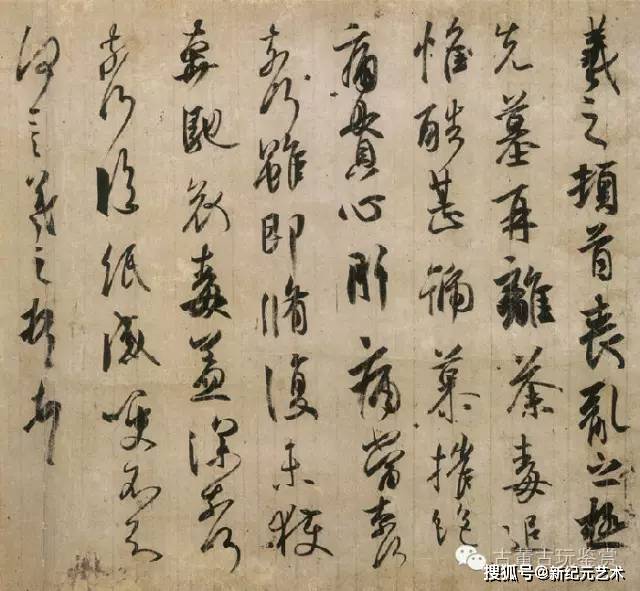 羲之頓首喪亂之極
先墓再離荼毒追
惟酷甚號慕摧絕
痛貫心肝痛當奈何
奈何雖即脩復未獲
奔馳哀毒益深奈何
奈何臨紙感哽不知
何言羲之頓首頓首
古董古玩鉴赏
搜狐号@新纪元艺术